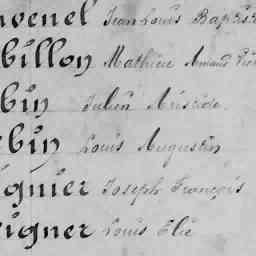 uvenel Jean Louis Baptiste
billon Mathieu Armand
bin Julien Aristide
bin Louis Augustin
ignier Joseph François
eigner Louis Elie